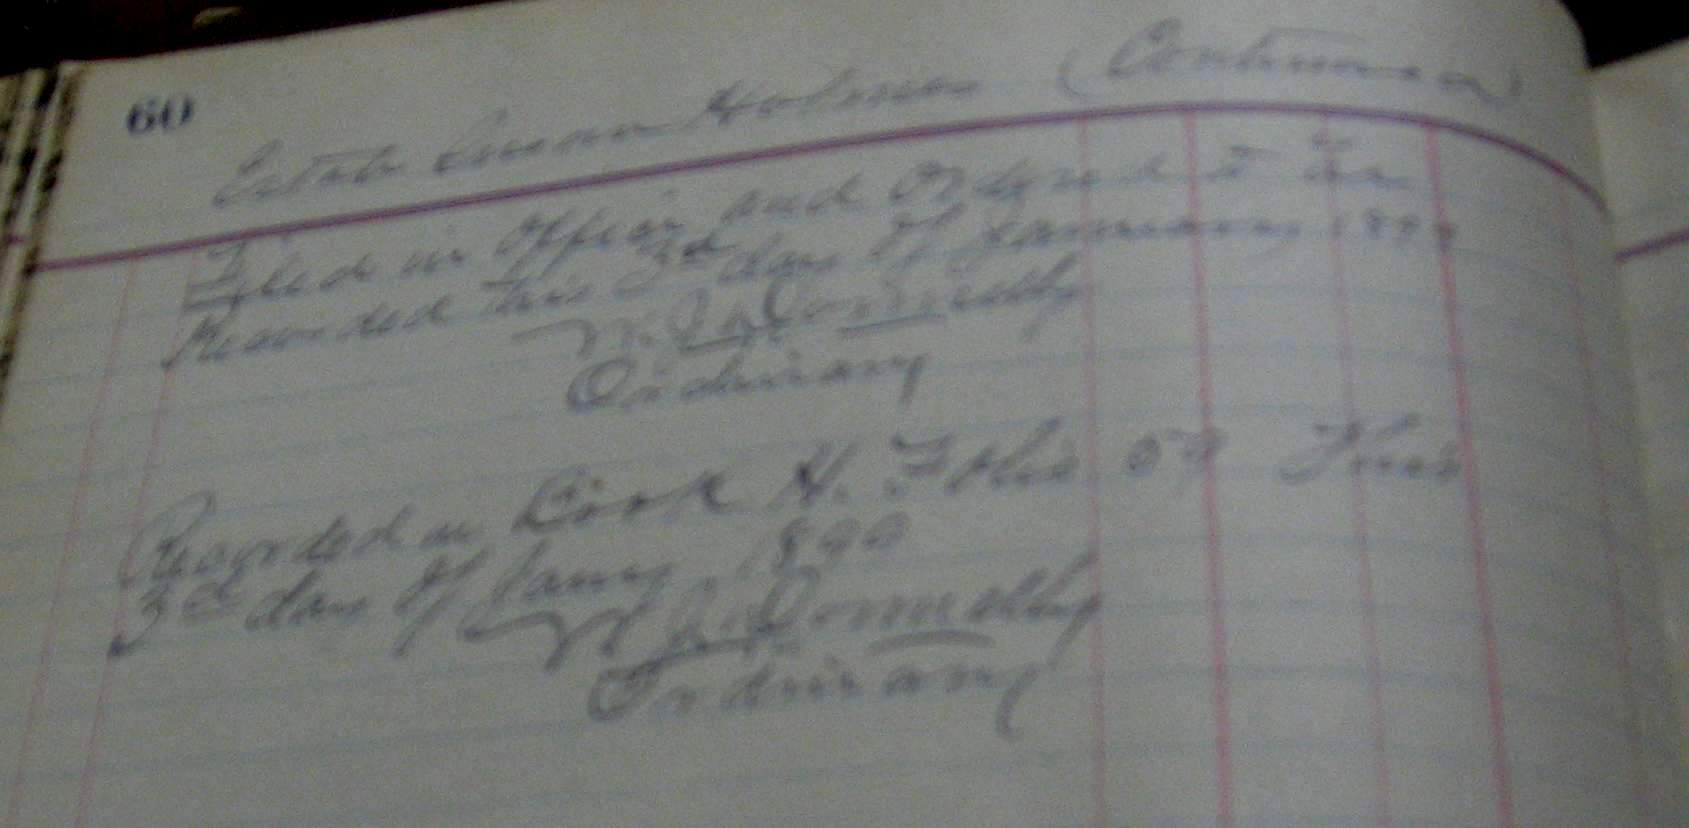 60
Estate Holmes (Continued)
Filed in office and Ordered to be
Recorded this 3rd day of January 1899
Donnelly
Ordinary
Recorded in Book H. Folio 59 This
3rd day of Jany. 1899
Donnelly
Ordinary